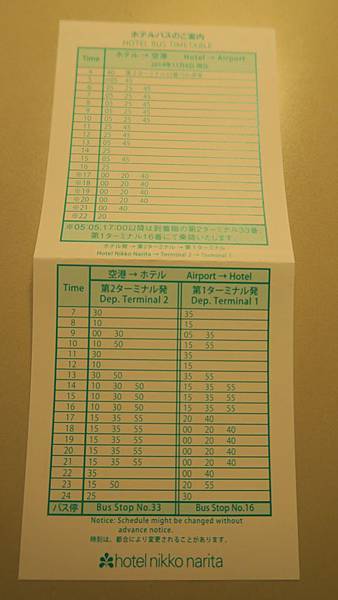 ホテルバスのご案内
HOTEL BUS TIMETABLE
Time ホテル → 空港 Hotel → Airport
2014年11月6日 現在
4 40
5 05 45
6 05 25 45
7 05 25 45
8 05 25 45
9 05 25 45
10 05 25 45
11 25 45
12 25 45
13 25 45
14 25
15 05 45
16 25
※17 00 20 40
※18 00 20 40
※19 00 20 40
※20 00 20 40
※21 00 40
※22 20
※05:05,17:00以降は到着階の第2ターミナル33番
第1ターミナル16番にて乗降いたします。
ホテル発 → 第2ターミナル → 第1ターミナル
Hotel Nikko Narita → Terminal 2 → Terminal 1
Time 空港 → ホテル Airport → Hotel
第2ターミナル発 第1ターミナル発
Dep. Terminal 2 Dep. Terminal 1
7 30 35
8 10 15
9 00 30 05 35
10 10 50 15 55
11 30 35
12 10 15
13 30 50 35 55
14 10 30 50 15 35 55
15 10 30 50 15 35 55
16 10 30 50 15 35 55
17 15 35 55 20 40
18 15 35 55 00 20 40
19 15 35 55 00 20 40
20 15 35 55 00 20 40
21 15 35 55 00 20 40
22 35 00 40
23 15 50 20 55
24 25 30
バス停 Bus Stop No.33 Bus Stop No.16
Notice: Schedule might be changed without
advance notice.
時刻は、都合により変更されることがあります。
hotel nikko narita